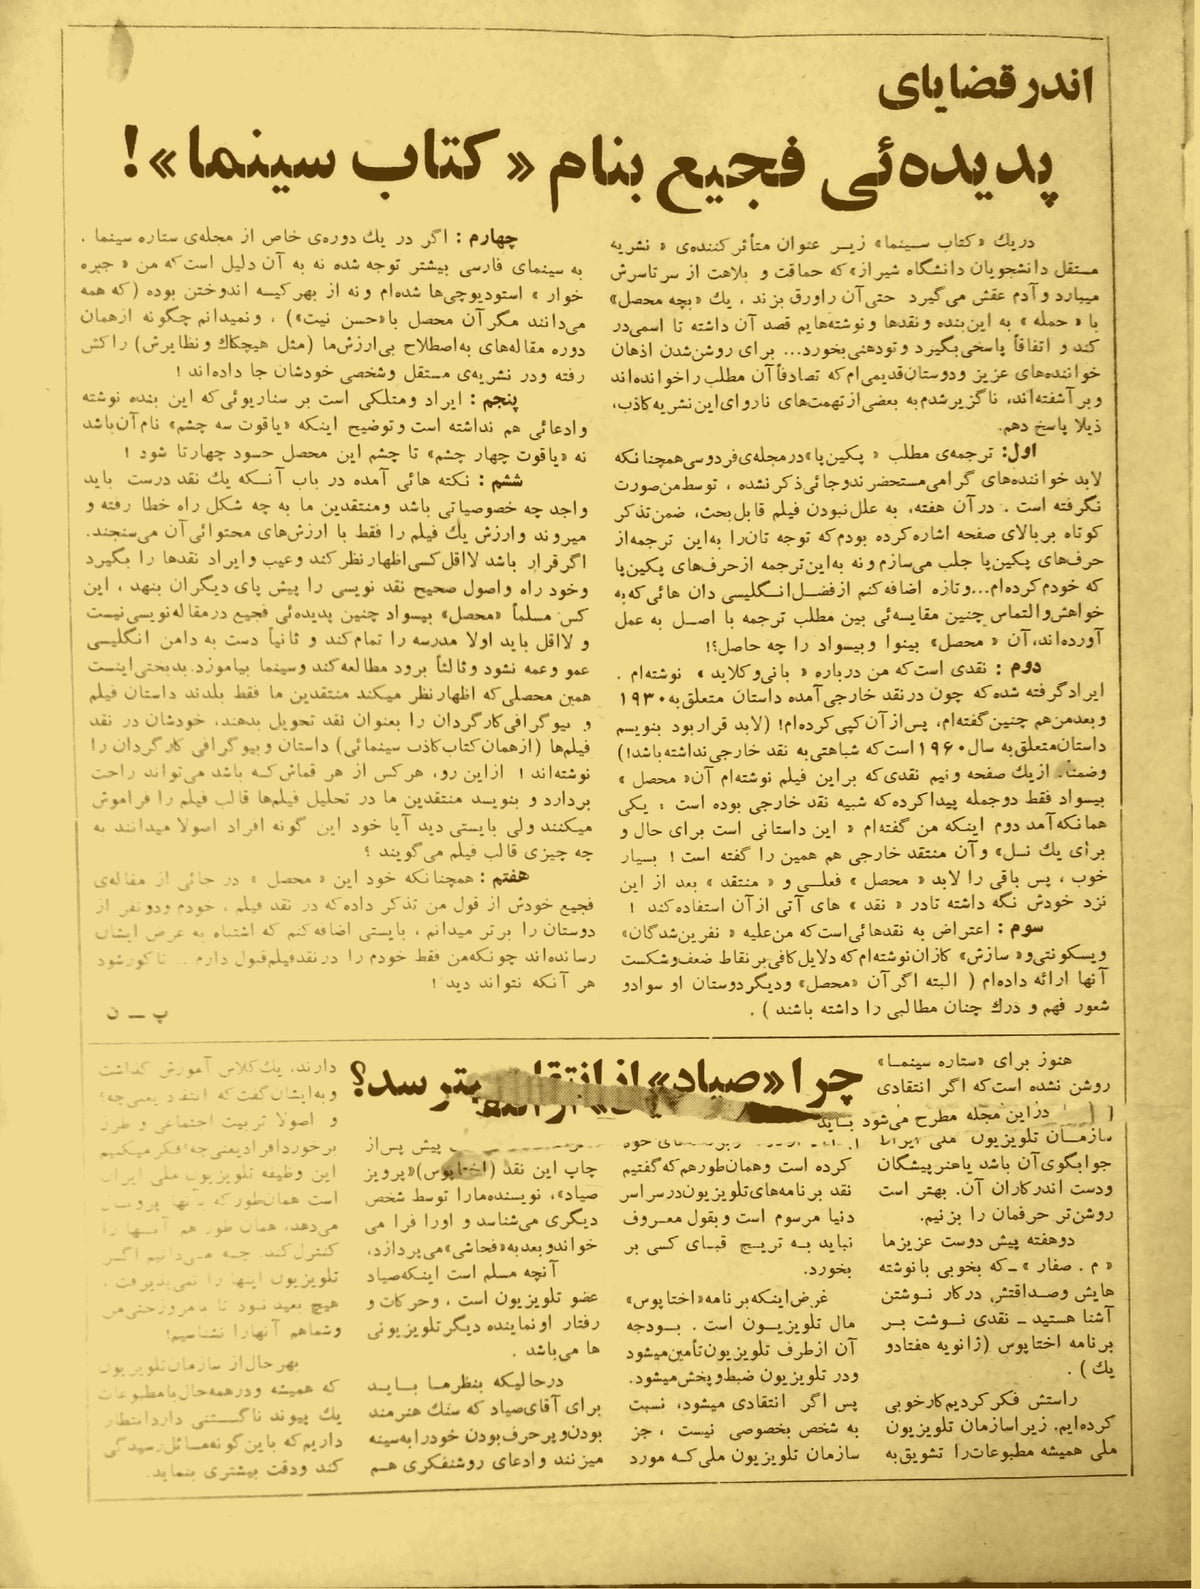 اندر قضایای
پدیده‌ئی فجیع بنام «کتاب سینما»!
دریك «کتاب سینما» زیر عنوان متأثر کننده‌ی « نشریه
مستقل دانشجویان دانشگاه شیراز» که حماقت و بلاهت از سر تاسرش
میبارد و آدم عقش می‌گیرد حتی آن را ورق بزند ، یك «بچه محصل»
با « حمله » به این بنده و نقدها و نوشته‌هایم قصد آن داشته تا اسمی در
کند و اتفاقاً پاسخی بگیرد و تودهنی بخورد... برای روشن‌شدن اذهان
خواننده‌های عزیز و دوستان قدیمی‌ام که تصادفاً آن مطلب را خوانده‌اند
و بر آشفته‌اند، ناگزیر شدم به بعضی از تهمت‌های ناروای این نشریه کاذب،
ذیلا پاسخ دهم.
اول: ترجمه‌ی مطلب « پکین‌پا» در مجله‌ی فردوسی همچنانکه
لابد خواننده‌های گرامی مستحضرند و جائی ذکر نشده ، توسط من صورت
نگرفته است . در آن هفته، به علل نبودن فیلم قابل بحث، ضمن تذکر
کوتاه بر بالای صفحه اشاره کرده بودم که توجه تان را به این ترجمه از
حرف‌های پکین‌پا جلب می‌سازم و نه به این ترجمه از حرف‌های پکین‌پا
که خودم کرده‌ام... و تازه اضافه کنم از فضل انگلیسی دان هائی که به
خواهش و التماس چنین مقایسه‌ئی بین مطلب ترجمه با اصل به عمل
آورده‌اند، آن « محصل» بینوا و بیسواد را چه حاصل؟!
دوم : نقدی است که من درباره « بانی و کلاید » نوشته‌ام .
ایراد گرفته شده که چون در نقد خارجی آمده داستان متعلق به ۱۹۳۰
و بعد من هم چنین گفته‌ام، پس از آن کپی کرده‌ام! (لابد قرار بود بنویسم
داستان متعلق به سال ۱۹۶۰ است که شباهتی به نقد خارجی نداشته باشد!)
وضمناً از یك صفحه و نیم نقدی که بر این فیلم نوشته‌ام آن« محصل »
بیسواد فقط دو جمله پیدا کرده که شبیه نقد خارجی بوده است : یکی
همانکه آمد دوم اینکه من گفته‌ام « این داستانی است برای حال و
برای یك نسل» و آن منتقد خارجی هم همین را گفته است ! بسیار
خوب ، پس باقی را لابد « محصل » فعلی و « منتقد » بعد از این
نزد خودش نگه داشته تا در « نقد » های آتی از آن استفاده کند !
سوم : اعتراض به نقدهائی است که من علیه « نفرین‌شدگان»
ویسکونتی و« سازش» کازان نوشته‌ام که دلایل کافی بر نقاط ضعف و شکست
آنها ارائه داده‌ام ( البته اگر آن «محصل» و دیگر دوستان او سواد و
شعور فهم و درك چنان مطالبی را داشته باشند ) .
چهارم : اگر در یك دوره‌ی خاص از مجله‌ی ستاره سینما .
به سینمای فارسی بیشتر توجه شده نه به آن دلیل است که من « جیره
خوار » استودیوچی‌ها شده‌ام و نه از بهر کیسه اندوختن بوده (که همه
می‌دانند مگر آن محصل با«حسن نیت») ، و نمیدانم چگونه از همان
دوره مقاله‌های به‌اصطلاح بی‌ارزش‌ما (مثل هیچکاك و نظایرش) را کش
رفته و در نشریه‌ی مستقل و شخصی خودشان جا داده‌اند !
پنجم : ایراد و متلکی است بر سناریوئی که این بنده نوشته
و ادعائی هم نداشته است و توضیح اینکه «یاقوت سه چشم» نام آن باشد
نه «یاقوت چهار چشم» تا چشم این محصل حسود چهارتا شود !
ششم : نکته هائی آمده در باب آنکه یك نقد درست باید
واجد چه خصوصیاتی باشد و منتقدین ما به چه شکل راه خطا رفته و
میروند و ارزش یك فیلم را فقط با ارزش‌های محتوائی آن می‌سنجند.
اگر قرار باشد لااقل کسی اظهار نظر کند و عیب و ایراد نقدها را بگیرد
و خود راه و اصول صحیح نقد نویسی را پیش پای دیگران بنهد ، این
کس مسلماً «محصل» بیسواد چنین پدیده‌ئی فجیع در مقاله نویسی نیست
و لااقل باید اولا مدرسه را تمام کند و ثانیاً دست به دامن انگلیسی
عمو و عمه نشود و ثالثاً برود مطالعه کند و سینما بیاموزد. بدبختی اینست
همین محصلی که اظهار نظر میکند منتقدین ما فقط بلدند داستان فیلم
و بیوگرافی کارگردان را بعنوان نقد تحویل بدهند، خودشان در نقد
فیلم‌ها (از همان کتاب کاذب سینمائی) داستان و بیوگرافی کارگردان را
نوشته‌اند ! ازاین رو، هر کس از هر قماش که باشد می‌تواند راحت
بردارد و بنویسد منتقدین ما در تحلیل فیلم‌ها قالب فیلم را فراموش
میکنند ولی بایستی دید آیا خود این گونه افراد اصولا میدانند به
چه چیزی قالب فیلم می‌گویند ؟
هفتم : همچنانکه خود این « محصل » در جائی از مقاله‌ی
فجیع خودش از قول من تذکر داده که در نقد فیلم ، خودم و دو نفر از
دوستان را برتر میدانم ، بایستی اضافه کنم که اشتباه به عرض ایشان
رسانده‌اند چونکه من فقط خودم را در نقد فیلم قبول دارم ... تا کور شود
هر آنکه نتواند دید !
پ ــ ن
چرا «صیاد» از انتقاد بترسد؟
هنوز برای «ستاره سینما»
روشن نشده است که اگر انتقادی
در این مجله مطرح می‌شود باید
سازمان تلویزیون ملی ایران
جوابگوی آن باشد یا هنرپیشگان
و دست اندرکاران آن. بهتر است
روشن‌تر حرفمان را بزنیم.
دو هفته پیش دوست عزیزما
« م . صفار » ــ که بخوبی با نوشته
هایش و صداقتش در کار نوشتن
آشنا هستید ــ نقدی نوشت بر
برنامه اختاپوس (ژانویه هفتاد و
یك ) .
راستش فکر کردیم کار خوبی
کرده‌ایم. زیرا سازمان تلویزیون
ملی همیشه مطبوعات را تشویق به
کرده است و همان‌طور هم که گفتیم
نقد برنامه‌های تلویزیون در سراسر
دنیا مرسوم است و بقول معروف
نباید به تریج قبای کسی بر
بخورد.
غرض اینکه برنامه «اختاپوس»
مال تلویزیون است . بودجه
آن از طرف تلویزیون تأمین میشود
و در تلویزیون ضبط و پخش میشود.
پس اگر انتقادی میشود، نسبت
به شخص بخصوصی نیست ، جز
سازمان تلویزیون ملی که مورد
پیش پس از
چاپ این نقد (اختاپوس)«پرویز
صیاد» ، نویسنده مارا توسط شخص
دیگری می‌شناسد و اورا فرا می
خواند و بعد به «فحاشی» می‌پردازد،
آنچه مسلم است اینکه صیاد
عضو تلویزیون است ، و حرکات و
رفتار او نماینده دیگر تلویزیونی
ها می‌باشد .
درحالیکه بنظر ما باید
برای آقای صیاد که سنك هنرمند
بودن و پر حرف بودن خود را به سینه
میزنند و ادعای روشنفکری هم
دارند، یك کلاس آموزش گذاشت
و به ایشان گفت که انتقاد یعنی چه؟
و اصولا تربیت اجتماعی و طرز
برخورد افراد یعنی چه؟ فکر میکنیم
این وظیفه تلویزیون ملی ایران
است همان‌طور که به آنها پروبال
می‌دهد، همان طور هم آنها را
کنترل کند. چه می‌دانیم اگر
تلویزیون اینها را نمی‌پذیرفت ،
هیچ بعید نبود تا به امروز حتی من
و شما هم آنها را نشناسیم!
بهر حال از سازمان تلویزیون
که همیشه و در همه حال با مطبوعات
یك پیوند ناگسستنی دارد انتظار
داریم که باین گونه مسائل رسیدگی
کند و دقت بیشتری بنماید.